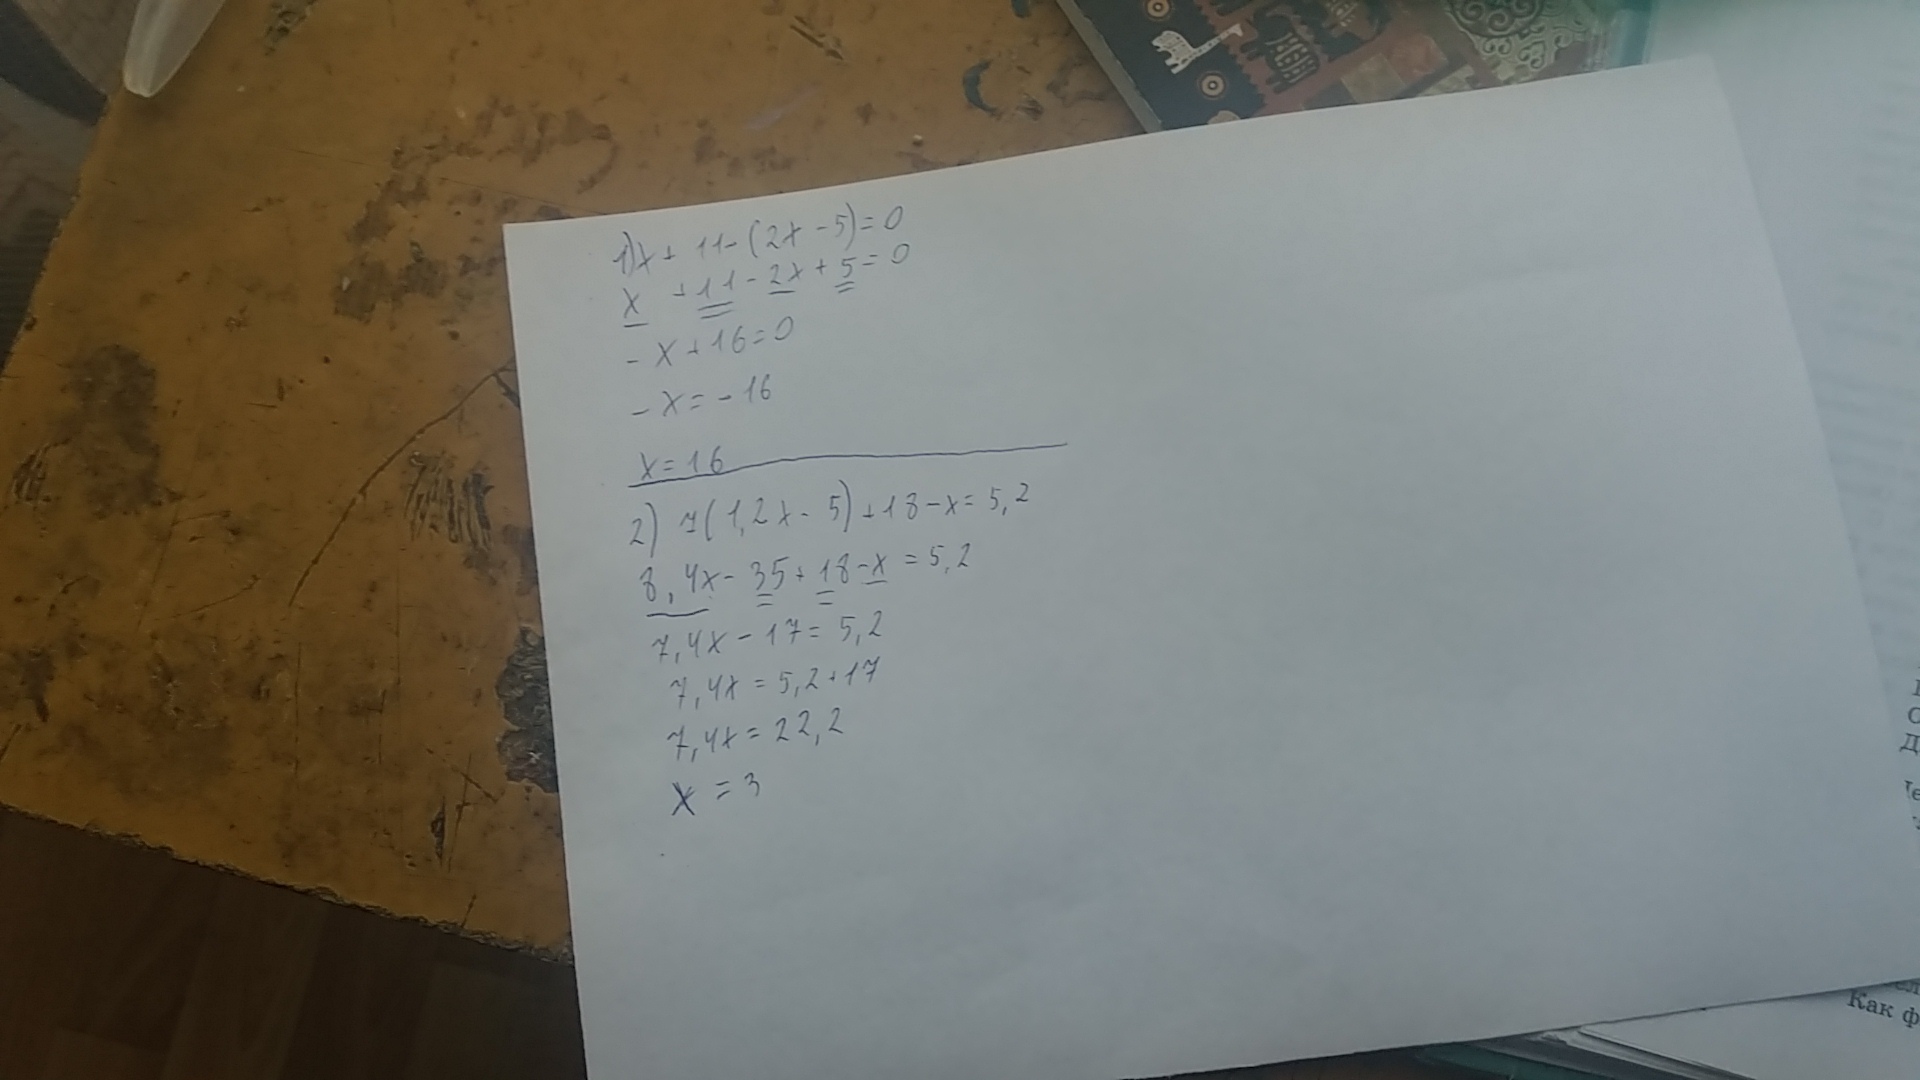 1) x + 11 - (2x - 5) = 0
x + 11 - 2x + 5 = 0
- x + 16 = 0
- x = - 16
x = 16
2) 7(1,2x - 5) + 18 - x = 5,2
8,4x - 35 + 18 - x = 5,2
7,4x - 17 = 5,2
7,4x = 5,2 + 17
7,4x = 22,2
x = 3
Как ф